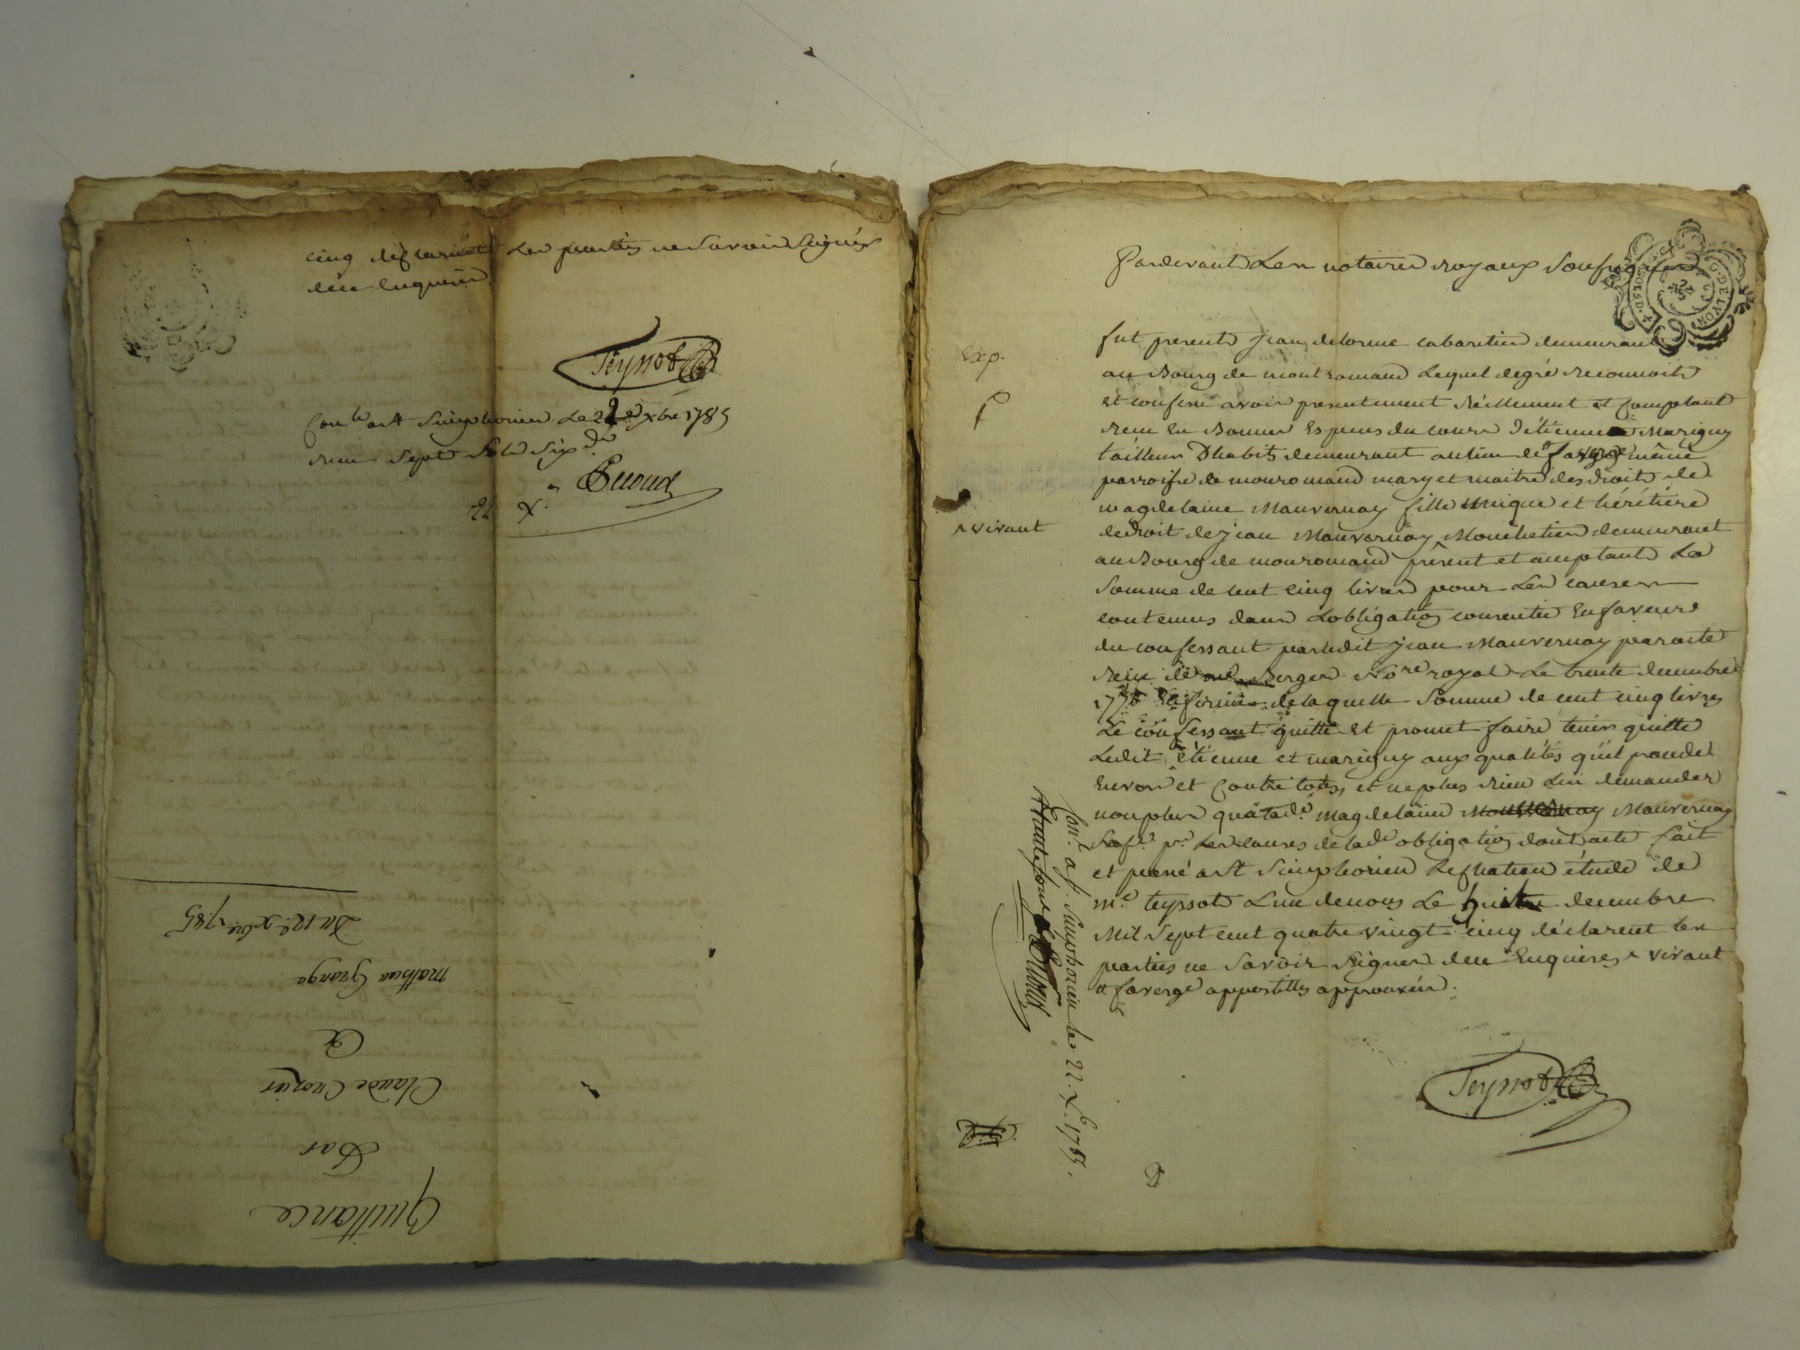 cinq déclarent Les parties ne Savoir Signer
de ce enquises
Teyssot
Con.lé a St Simphorien Le 22 Xbre 1785
Reçu Sept Sols Six d.rs
Peroud
Du 12 Xbre 1785
Mathieu Grange
A
Claude Crozier
Par
Quittance
Pardevant Les notaires royaux Soussignés
fut present jean delorme cabaretier demeurant
Exp.
au Bourg de montromand Lequel de gré reconnoit
et confesse avoir presentement réellement et comptant
reçu en Bonnes Espèces du cours d'étienne Marigny
tailleur D'habits demeurant au lieu de farge même
parroisse de mouromand mary et maitre des droits de
magdelaine Mauvernay fille unique et héritière
vivant
de droit de jean Mauvernay Mouchetier demeurant
au Bourg de mouromand présent et acceptant La
Somme de cent cinq livres pour Les causes
contenues dans Lobligation consentie En faveur
du confessant par ledit jean Mauvernay par acte
reçu de me Berger No.re royal Le trente decembre
de laquelle Somme de cent cinq livres
Le confessant quitte et promet faire tenir quitte
Ledit étienne et marigny aux qualités qu'il procède
Envers et contre tous, et ne plus rien Lui demander
non plus qu'a lad.e Magdelaine Mauvernay
pr. Les causes de lad.e obligation dont acte fait
et passé a St Simphorien Le chateau étude de
m.e teyssot L'un de nous Le huit decembre
Mil Sept cent quatre vingt cinq déclarent les
parties ne Savoir Signer de ce Enquises vivant
et faverge appostilles approuvées.
Teyssot
Con.lé a St Simphorien le 22 Xbre 1785.